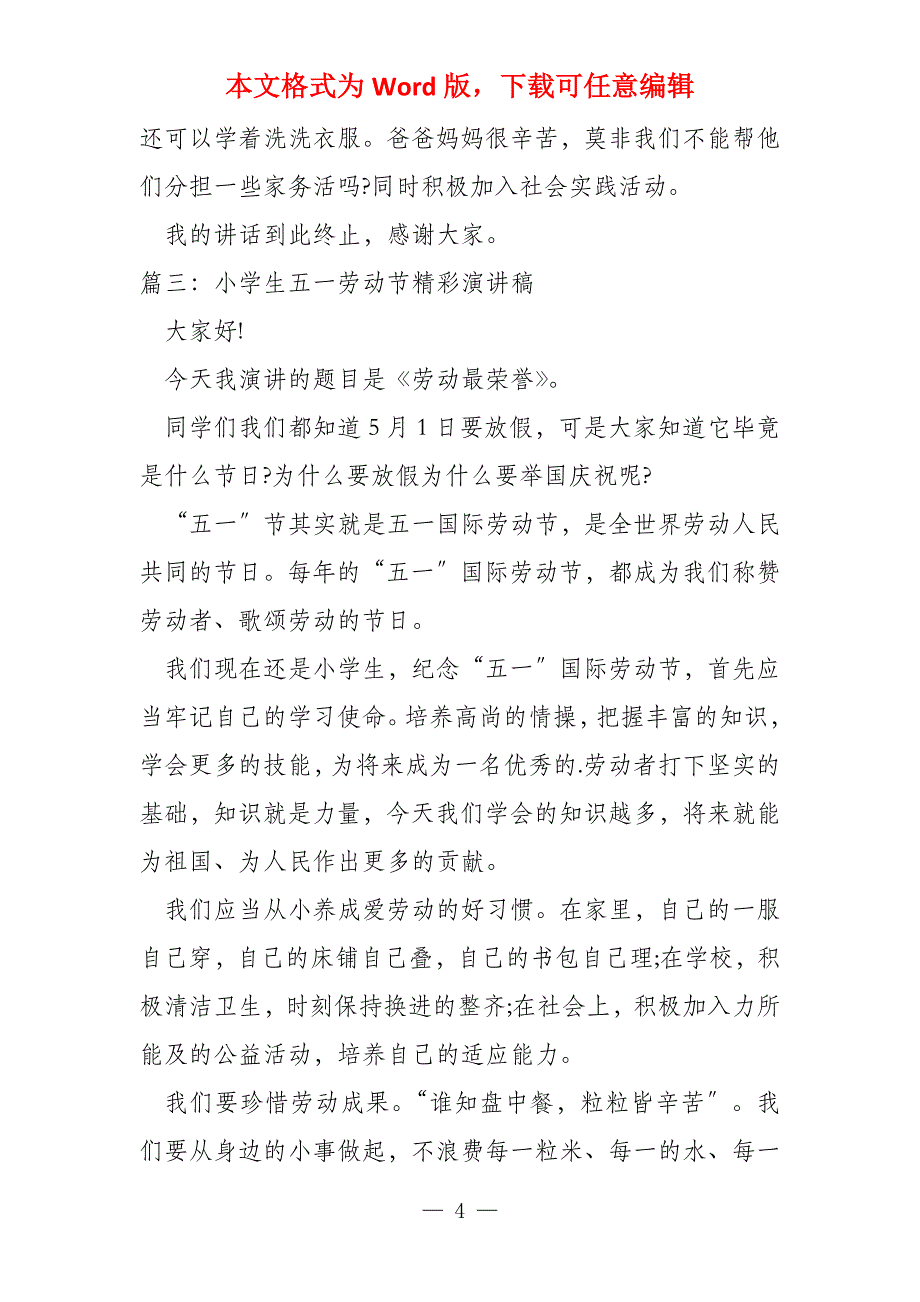 本文格式为 Word 版，下载可任意编辑
还可以学着洗洗衣服。爸爸妈妈很辛苦，莫非我们不能帮他
们分担一些家务活吗?同时积极加入社会实践活动。
我的讲话到此终止，感谢大家。
篇三：小学生五一劳动节精彩演讲稿
大家好!
今天我演讲的题目是《劳动最荣誉》。
同学们我们都知道 5 月 1 日要放假，可是大家知道它毕竟
是什么节日?为什么要放假为什么要举国庆祝呢?
“五一〞节其实就是五一国际劳动节，是全世界劳动人民
共同的节日。每年的“五一〞国际劳动节，都成为我们称赞
劳动者、歌颂劳动的节日。
我们现在还是小学生，纪念“五一〞国际劳动节，首先应
当牢记自己的学习使命。培养高尚的情操，把握丰富的知识，
学会更多的技能，为将来成为一名优秀的.劳动者打下坚实的
基础，知识就是力量，今天我们学会的知识越多，将来就能
为祖国、为人民作出更多的贡献。
我们应当从小养成爱劳动的好习惯。在家里，自己的一服
自己穿，自己的床铺自己叠，自己的书包自己理;在学校，积
极清洁卫生，时刻保持换进的整齐;在社会上，积极加入力所
能及的公益活动，培养自己的适应能力。
我们要珍惜劳动成果。“谁知盘中餐，粒粒皆辛苦〞。我
们要从身边的小事做起，不浪费每一粒米、每一的水、每一
— 4 —